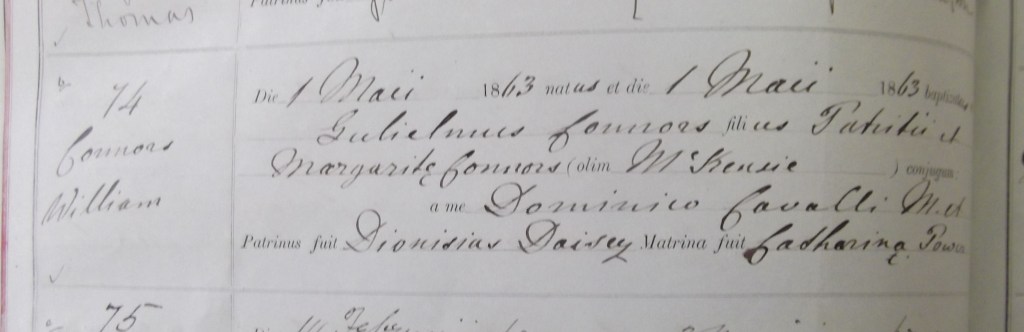 Thomas
Patrinus fuit
74
Connors
William
Die 1 Maii 1863 natus et die 1 Maii 1863 baptizatus
Gulielmus Connors filius Patritii et
Margaritę Connors (olim McKensie ) conjugum
a me Dominico Cavalli M. et
Patrinus fuit Dionisias Daisey Matrina fuit Catharina Power
75